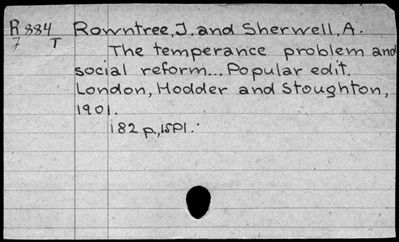 R884 Rowntree, J. and Sherwell, A.
7 T The temperance problem and
social reform... Popular edit.
London, Hodder and Stoughton,
1901.
182 p., 15pl.